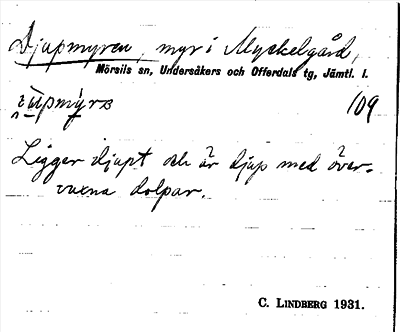 Djupmyren, myr i Myckelgård,
Mörsils sn, Undersåkers och Offerdals tg, Jämtl. l.
109
Ligger djupt och är djup med över-
vuxna dolpar.
C. LINDBERG 1931.